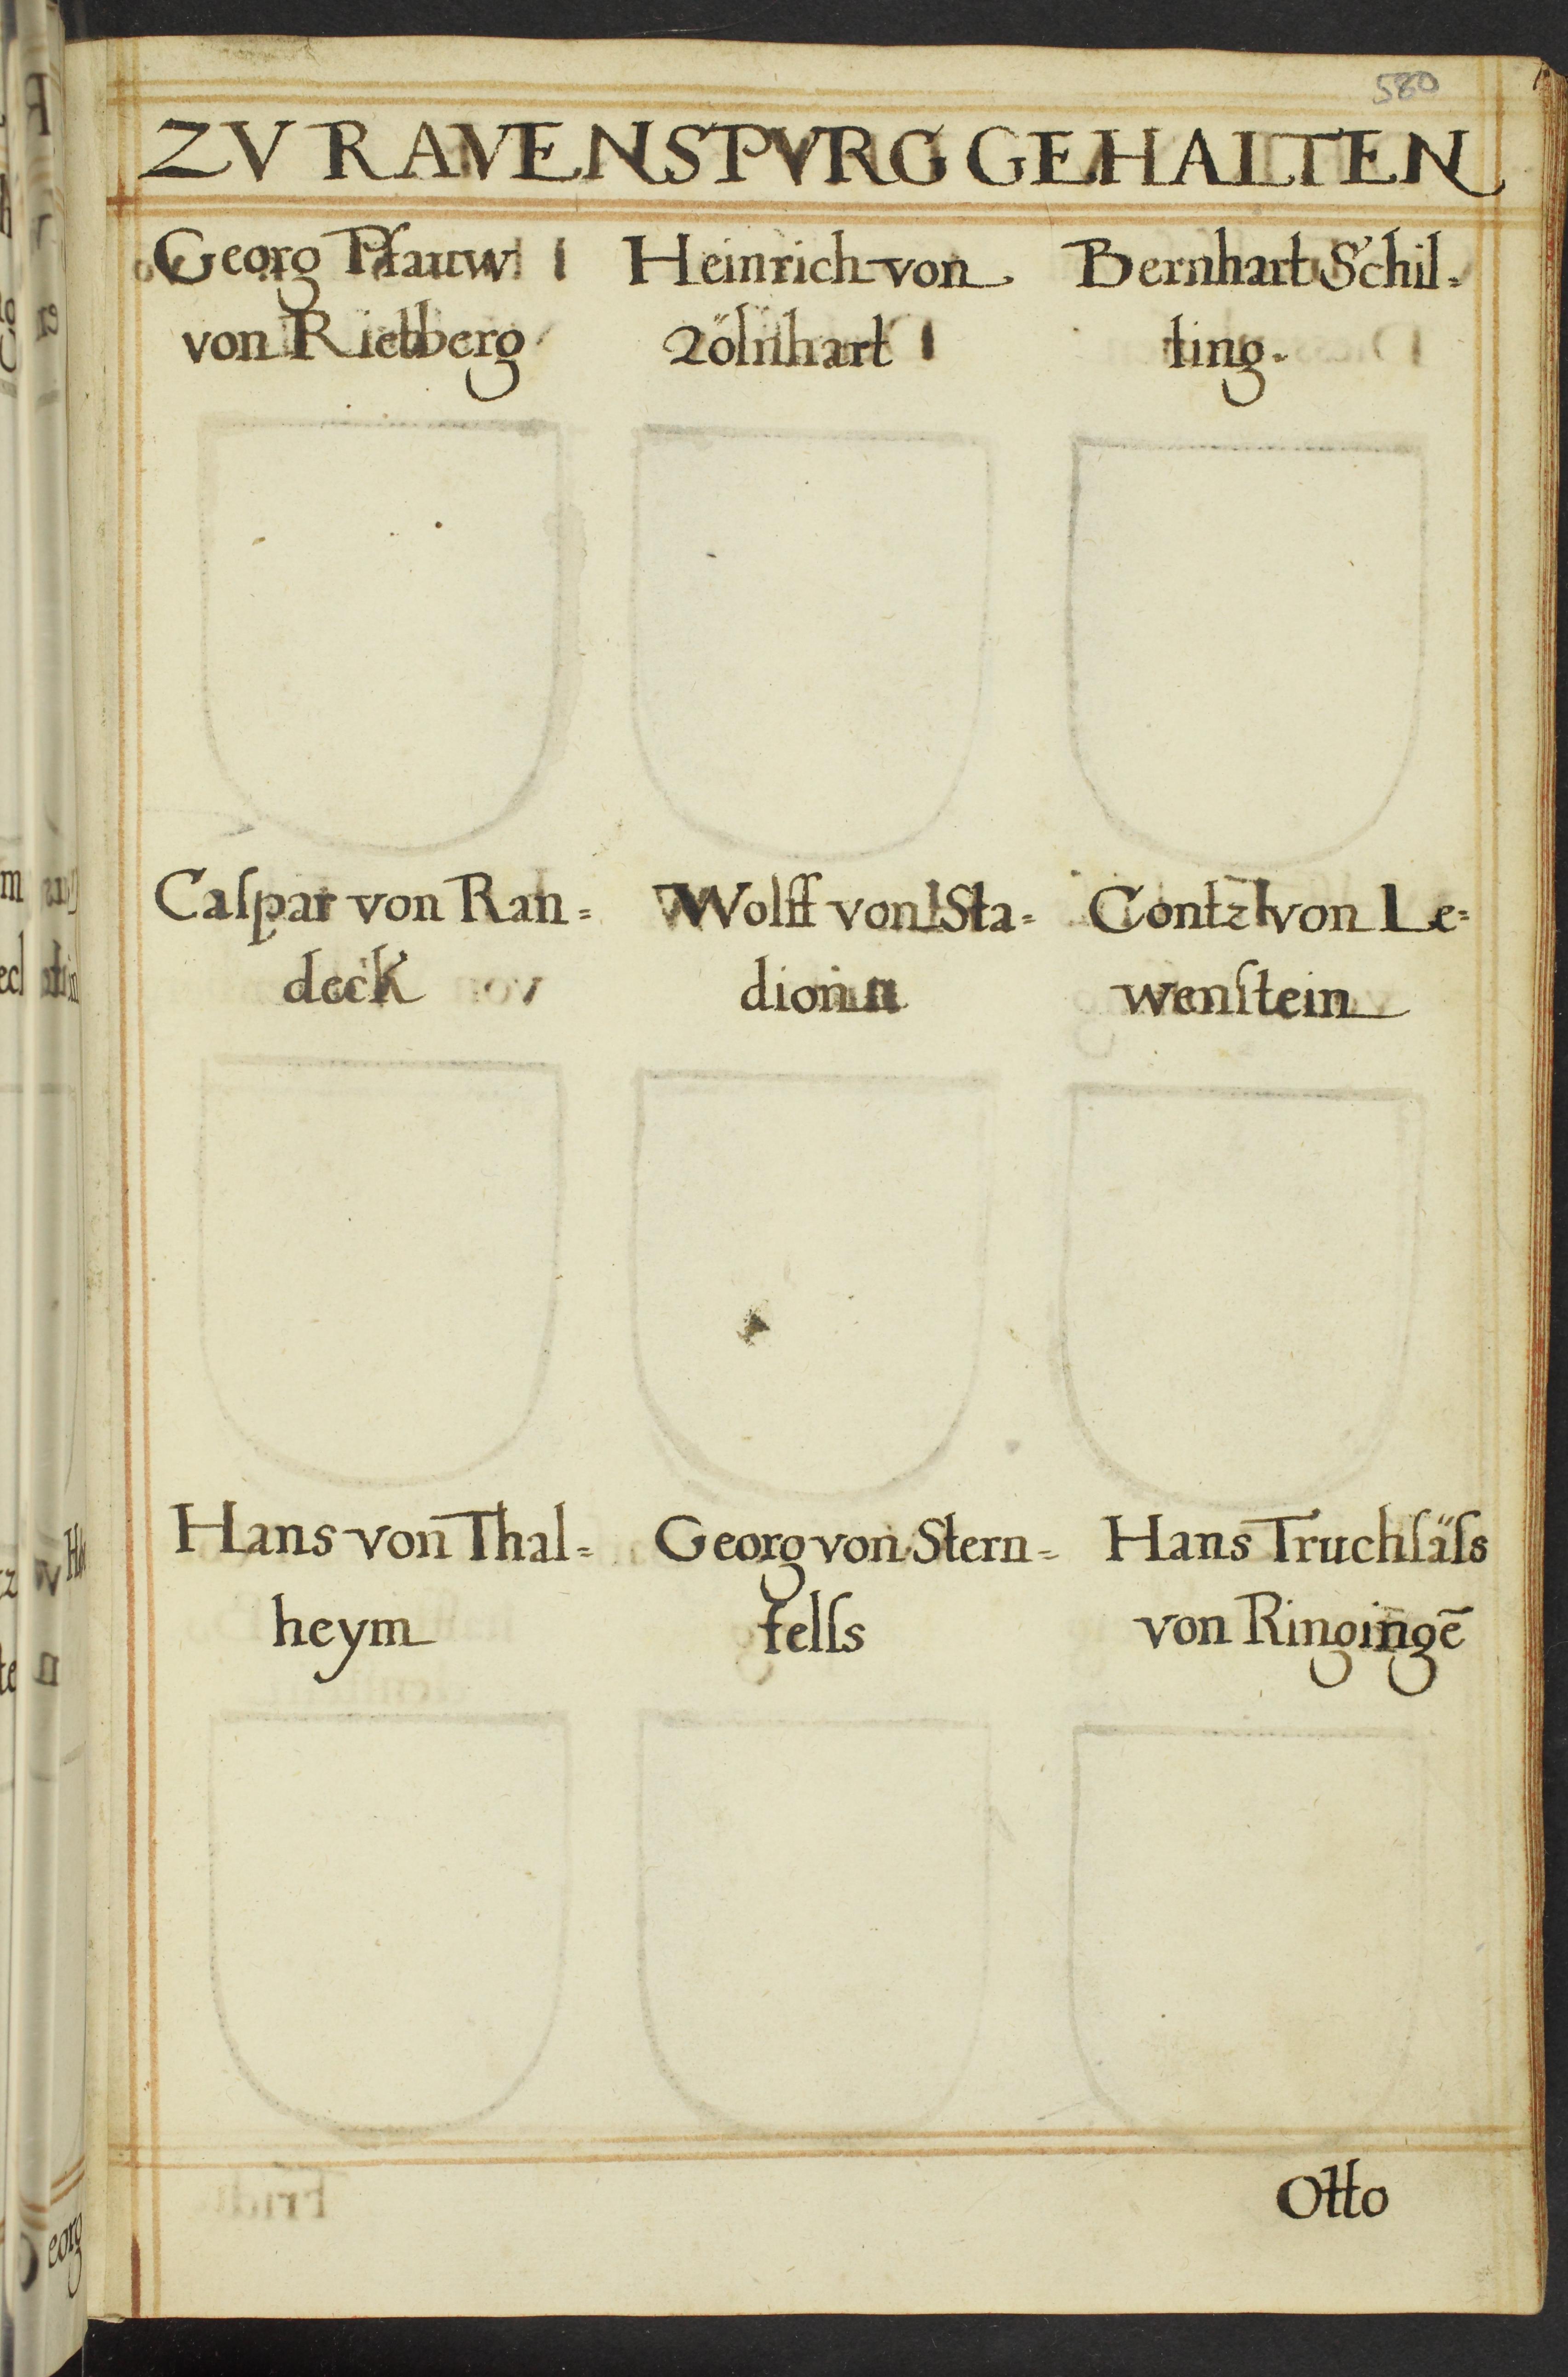 580
ZV RAVENSPVRG GEHALTEN
Georg Pfauw
von Rietberg
Heinrich von
Zölnhart
Bernhart Schil-
ling.
Caſpar von Ran=
deck
Wolff von Sta=
dion
Contz von Le=
wenſtein
Hans von Thal=
heym
Georg von Stern=
felſs
Hans Truchſäſs
von Ringingē
Otto